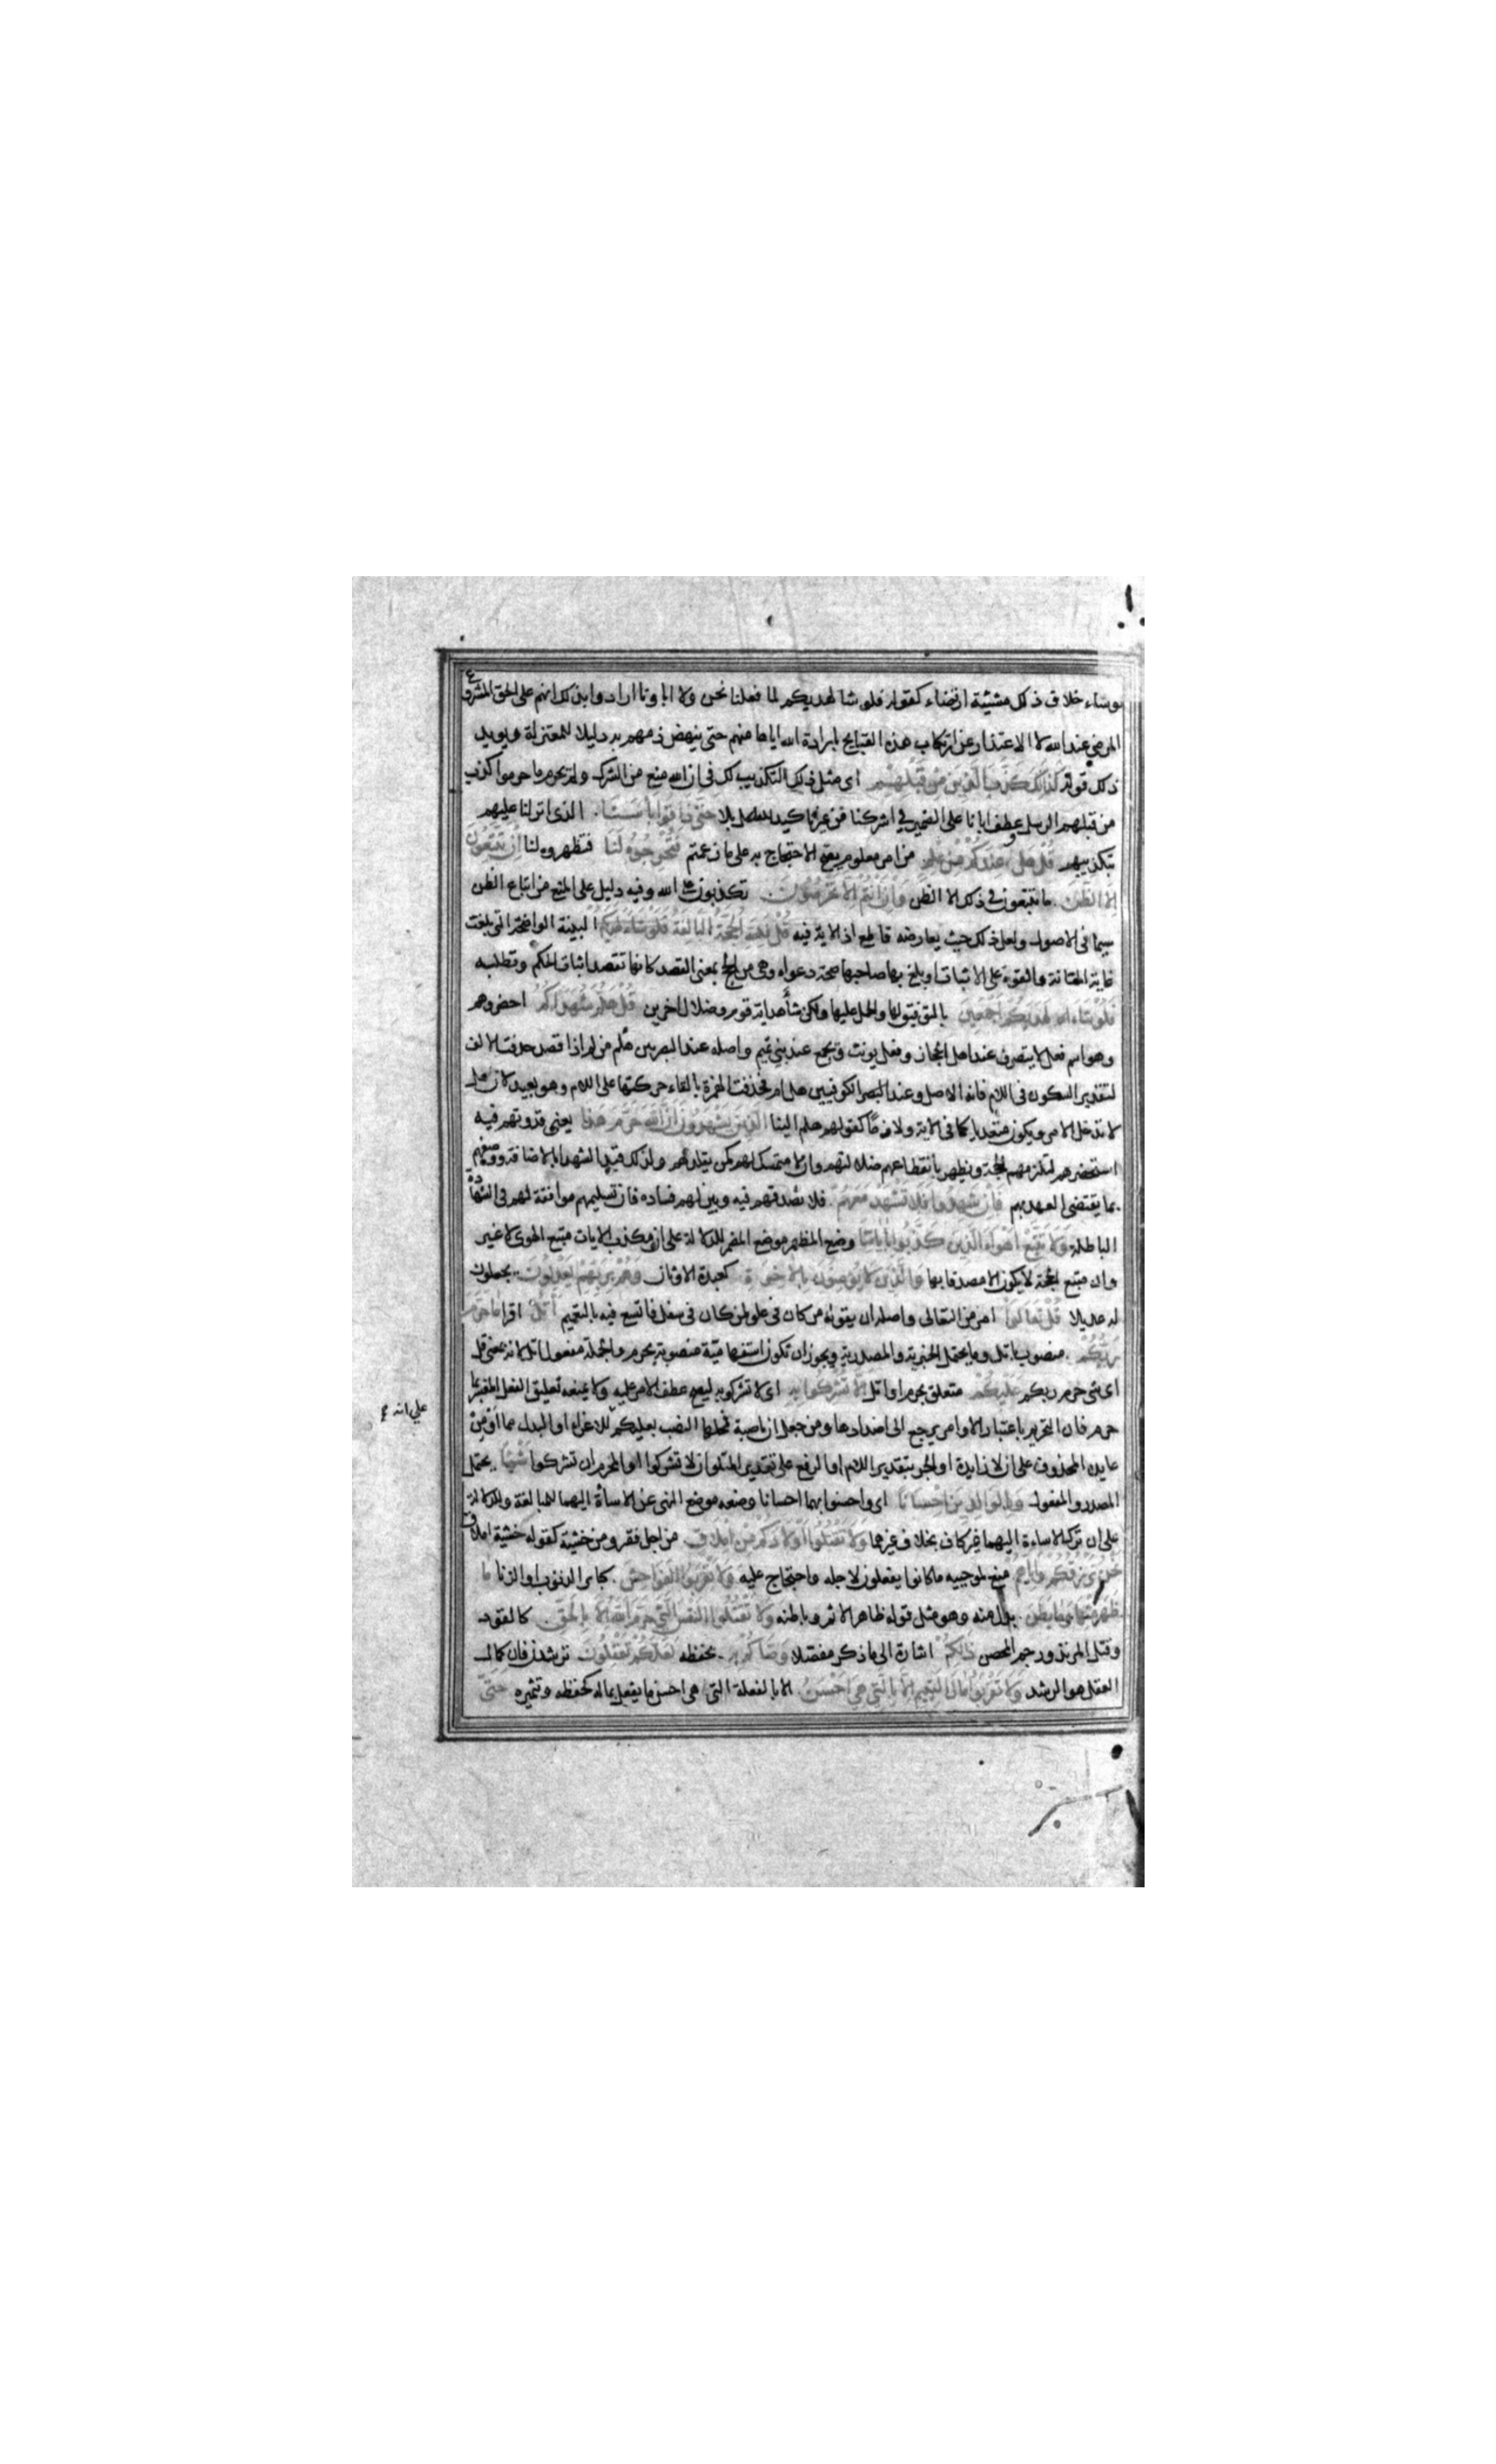 لو شاء خلاف ذلك مشيئة ارتضاء كقوله فلو شا لهديكم لما فعلنا نحن ولا ابا ونا ارادوا بذلك انهم على الحق المشروع
المرضي عند الله لا الاعتذار عن ارتكاب هذه القبايح بارادة الله اياها منهم حتى ينهض ذمهم به دليلا للمعتزلة ويويد
ذلك قوله كَذٰلِكَ كَذَّبَ الَّذِينَ مِنْ قَبْلِهِمْ اى مثل ذلك التكذيب لك فى ان الله منع من الشرك ولم يحرم ما حرموا كذب
من قبلهم الرسل وعطف ابانا على الضمير في اشركنا من غير تاكيد للفصل بلا حَتَّى ذَاقُوا بَأْسَنَا الذى انزلنا عليهم
بتكذيبهم قُلْ هَلْ عِنْدَكُمْ مِنْ عِلْمٍ من امر معلوم يصح الاحتجاج به على ما زعمتم فَتُخْرِجُوهُ لَنَا فتظهروه لنا اِنْ تَتَّبِعُونَ
اِلَّا الظَّنَّ ما تتبعون في ذلك الا الظن وَاِنْ اَنْتُمْ اِلَّا تَخْرُصُونَ تكذبون على الله وفيه دليل على المنع من اتباع الظن
سيما فى الاصول ولعل ذلك حيث يعارضه قاطع اذ الاية فيه قُلْ فَلِلّٰهِ الْحُجَّةُ الْبَالِغَةُ البينة الواضحة التى بلغت
غاية المتانة والقوة على الاثبات او بلغ بها صاحبها صحة دعواه وهى من الحج بمعنى القصد كانها تقصد اثبات الحكم وتطلبه
فَلَوْ شَاءَ لَهَدٰيكُمْ اَجْمَعِينَ بالتوفيق لها والحمل عليها ولكن شاء هداية قوم وضلال اخرين قُلْ هَلُمَّ شُهَدَاءَكُمُ احضروهم
وهو اسم فعل لا يتصرف عند اهل الحجاز وفعل يونث ويجمع عند بني تميم واصله عند البصريين هالم من لم اذا قصد حذفت الالف
لتقدير السكون فى اللام فانه الاصل وعند الكوفيين هل ام فحذفت الهمزة بالقاء حركتها على اللام وهو بعيد لان هل
لا تدخل الامر ويكون متعديا كما فى الاية ولازما كقولهم هلم الينا الَّذِينَ يَشْهَدُونَ اَنَّ اللّٰهَ حَرَّمَ هٰذَا يعنى قدوتهم فيه
استحضرهم لتلزمهم الحجة ويظهر بانقطاعهم ضلالتهم وان لا متمسك لهم كمن يقلدهم ولذلك قيد الشهدا بالاضافة ووصفهم
بما يقتضى العهد بهم فَاِنْ شَهِدُوا فَلَا تَشْهَدْ مَعَهُمْ فلا تصدقهم فيه وبين لهم فساده فان تسليمهم موافقة لهم فى الشهادة
الباطلة وَلَا تَتَّبِعْ اَهْوَاءَ الَّذِينَ كَذَّبُوا بِاٰيَاتِنَا وضع المظهر موضع المضمر للدلالة على ان مكذب الايات متبع الهوى لا غير
وان متبع الحجة لا يكون الا مصدقا بها وَالَّذِينَ لَا يُؤْمِنُونَ بِالْاٰخِرَةِ كعبدة الاوثان وَهُمْ بِرَبِّهِمْ يَعْدِلُونَ يجعلون
له عديلا قُلْ تَعَالَوْا امر من التعالى واصله ان يقوله من كان فى علو لمن كان فى سفل فاتسع فيه بالتعميم اَتْلُ اقرا مَا حَرَّمَ
رَبُّكُمْ منصوب باتل وما يحتمل الخبرية والمصدرية ويجوز ان تكون استفهامية منصوبة بحرم والجملة مفعول اتل لانه بمعنى قل
اى شى حرم ربكم عَلَيْكُمْ متعلق بحرم او اتل اَلَّا تُشْرِكُوا بِهِ اى لا تشركوا به ليصح عطف الامر عليه ولا يمنعه تعليق الفعل المفسر بما
حرم فان التحريم باعتبار الاوامر يرجع الى اضدادها ومن جعل ان ناصبة فمحلها النصب بعليكم للاغراء او البدل مما او من
عايده المحذوف على ان لا زايدة او الجر بتقدير اللام او الرفع على تقدير المتلو ان لا تشركوا او المحرم ان تشركوا شَيْئًا يحتمل
المصدر والمفعول وَبِالْوَالِدَيْنِ اِحْسَانًا اى واحسنوا بهما احسانا وضعه موضع النهى عن الاساة اليهما للمبالغة والدلالة
على ان ترك الاساءة اليهما غير كاف بخلاف غيرهما وَلَا تَقْتُلُوا اَوْلَادَكُمْ مِنْ اِمْلَاقٍ من اجل فقر ومن خشيته كقوله خشية املاق
نَحْنُ نَرْزُقُكُمْ وَاِيَّاهُمْ منع لموجبية ما كانوا يفعلون لاجله واحتجاج عليه وَلَا تَقْرَبُوا الْفَوَاحِشَ كباير الذنوب او الزنا مَا
ظَهَرَ مِنْهَا وَمَا بَطَنَ بدل منه وهو مثل قوله ظاهر الاثم وباطنه وَلَا تَقْتُلُوا النَّفْسَ الَّتِى حَرَّمَ اللّٰهُ اِلَّا بِالْحَقِّ كالقود
وقتل المرتد ورجم المحصن ذٰلِكُمْ اشارة الى ما ذكر مفصلا وَصّٰاكُمْ بِهِ بحفظه لَعَلَّكُمْ تَعْقِلُونَ ترشدون فان كمال
العقل هو الرشد وَلَا تَقْرَبُوا مَالَ الْيَتِيمِ اِلَّا بِالَّتِى هِىَ اَحْسَنُ الا بالفعلة التى هى احسن ما يفعل بماله كحفظه وتثميره حَتّٰى
علي انه